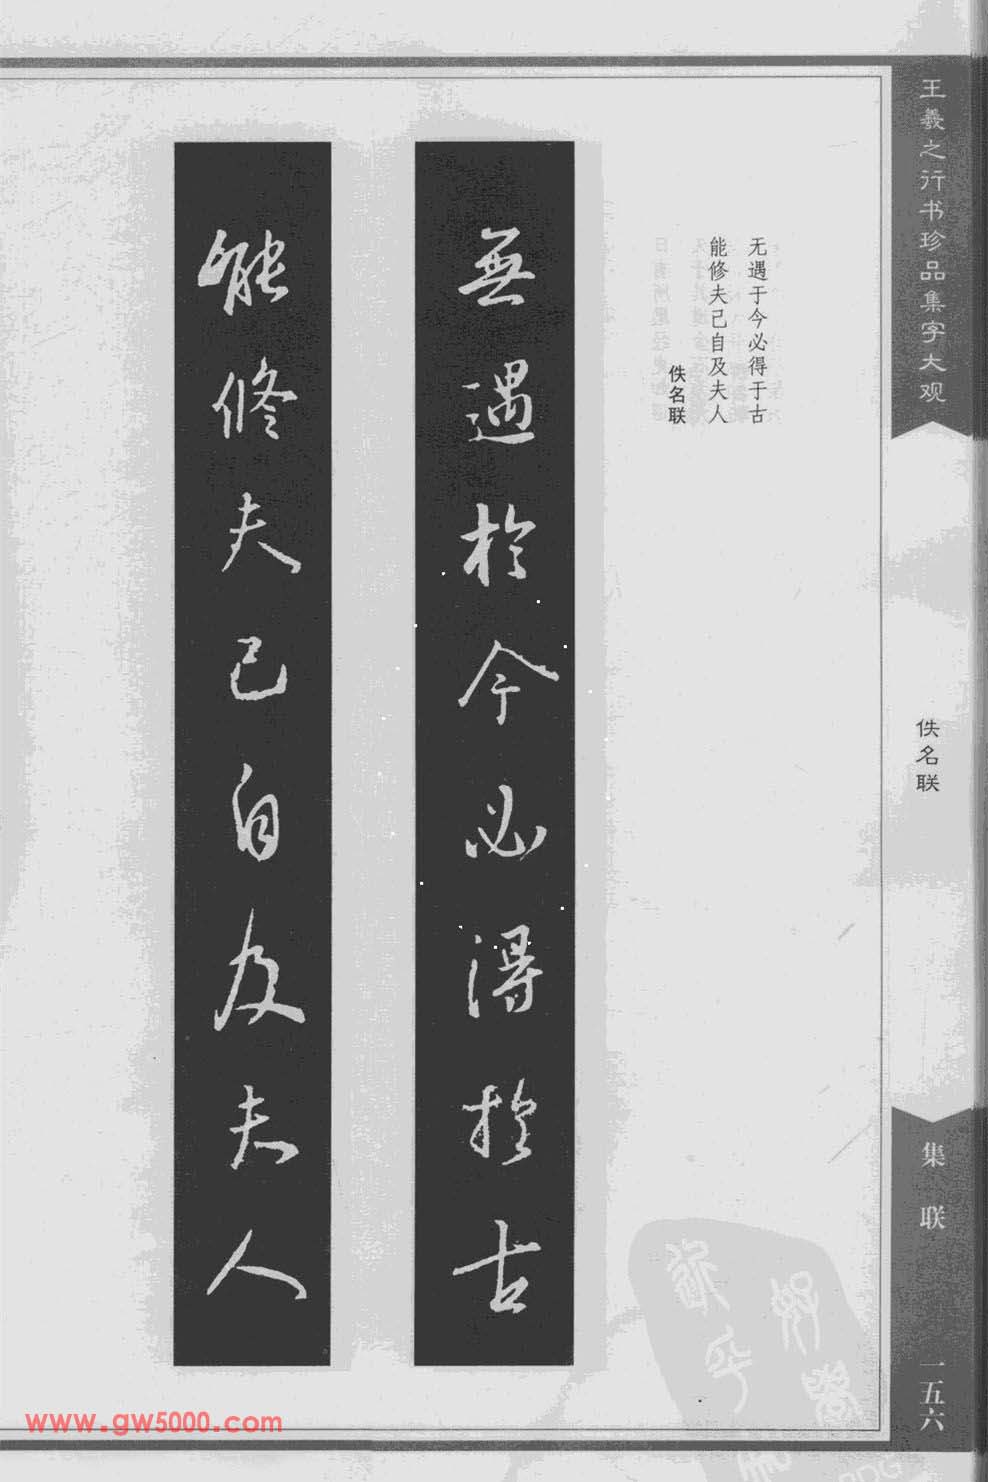 王羲之行书珍品集字大观
佚名联
集联
一五六
无遇于今必得于古
能修夫己自及夫人
佚名联
無遇於今必得於古
能修夫己自及夫人
www.gw5000.com